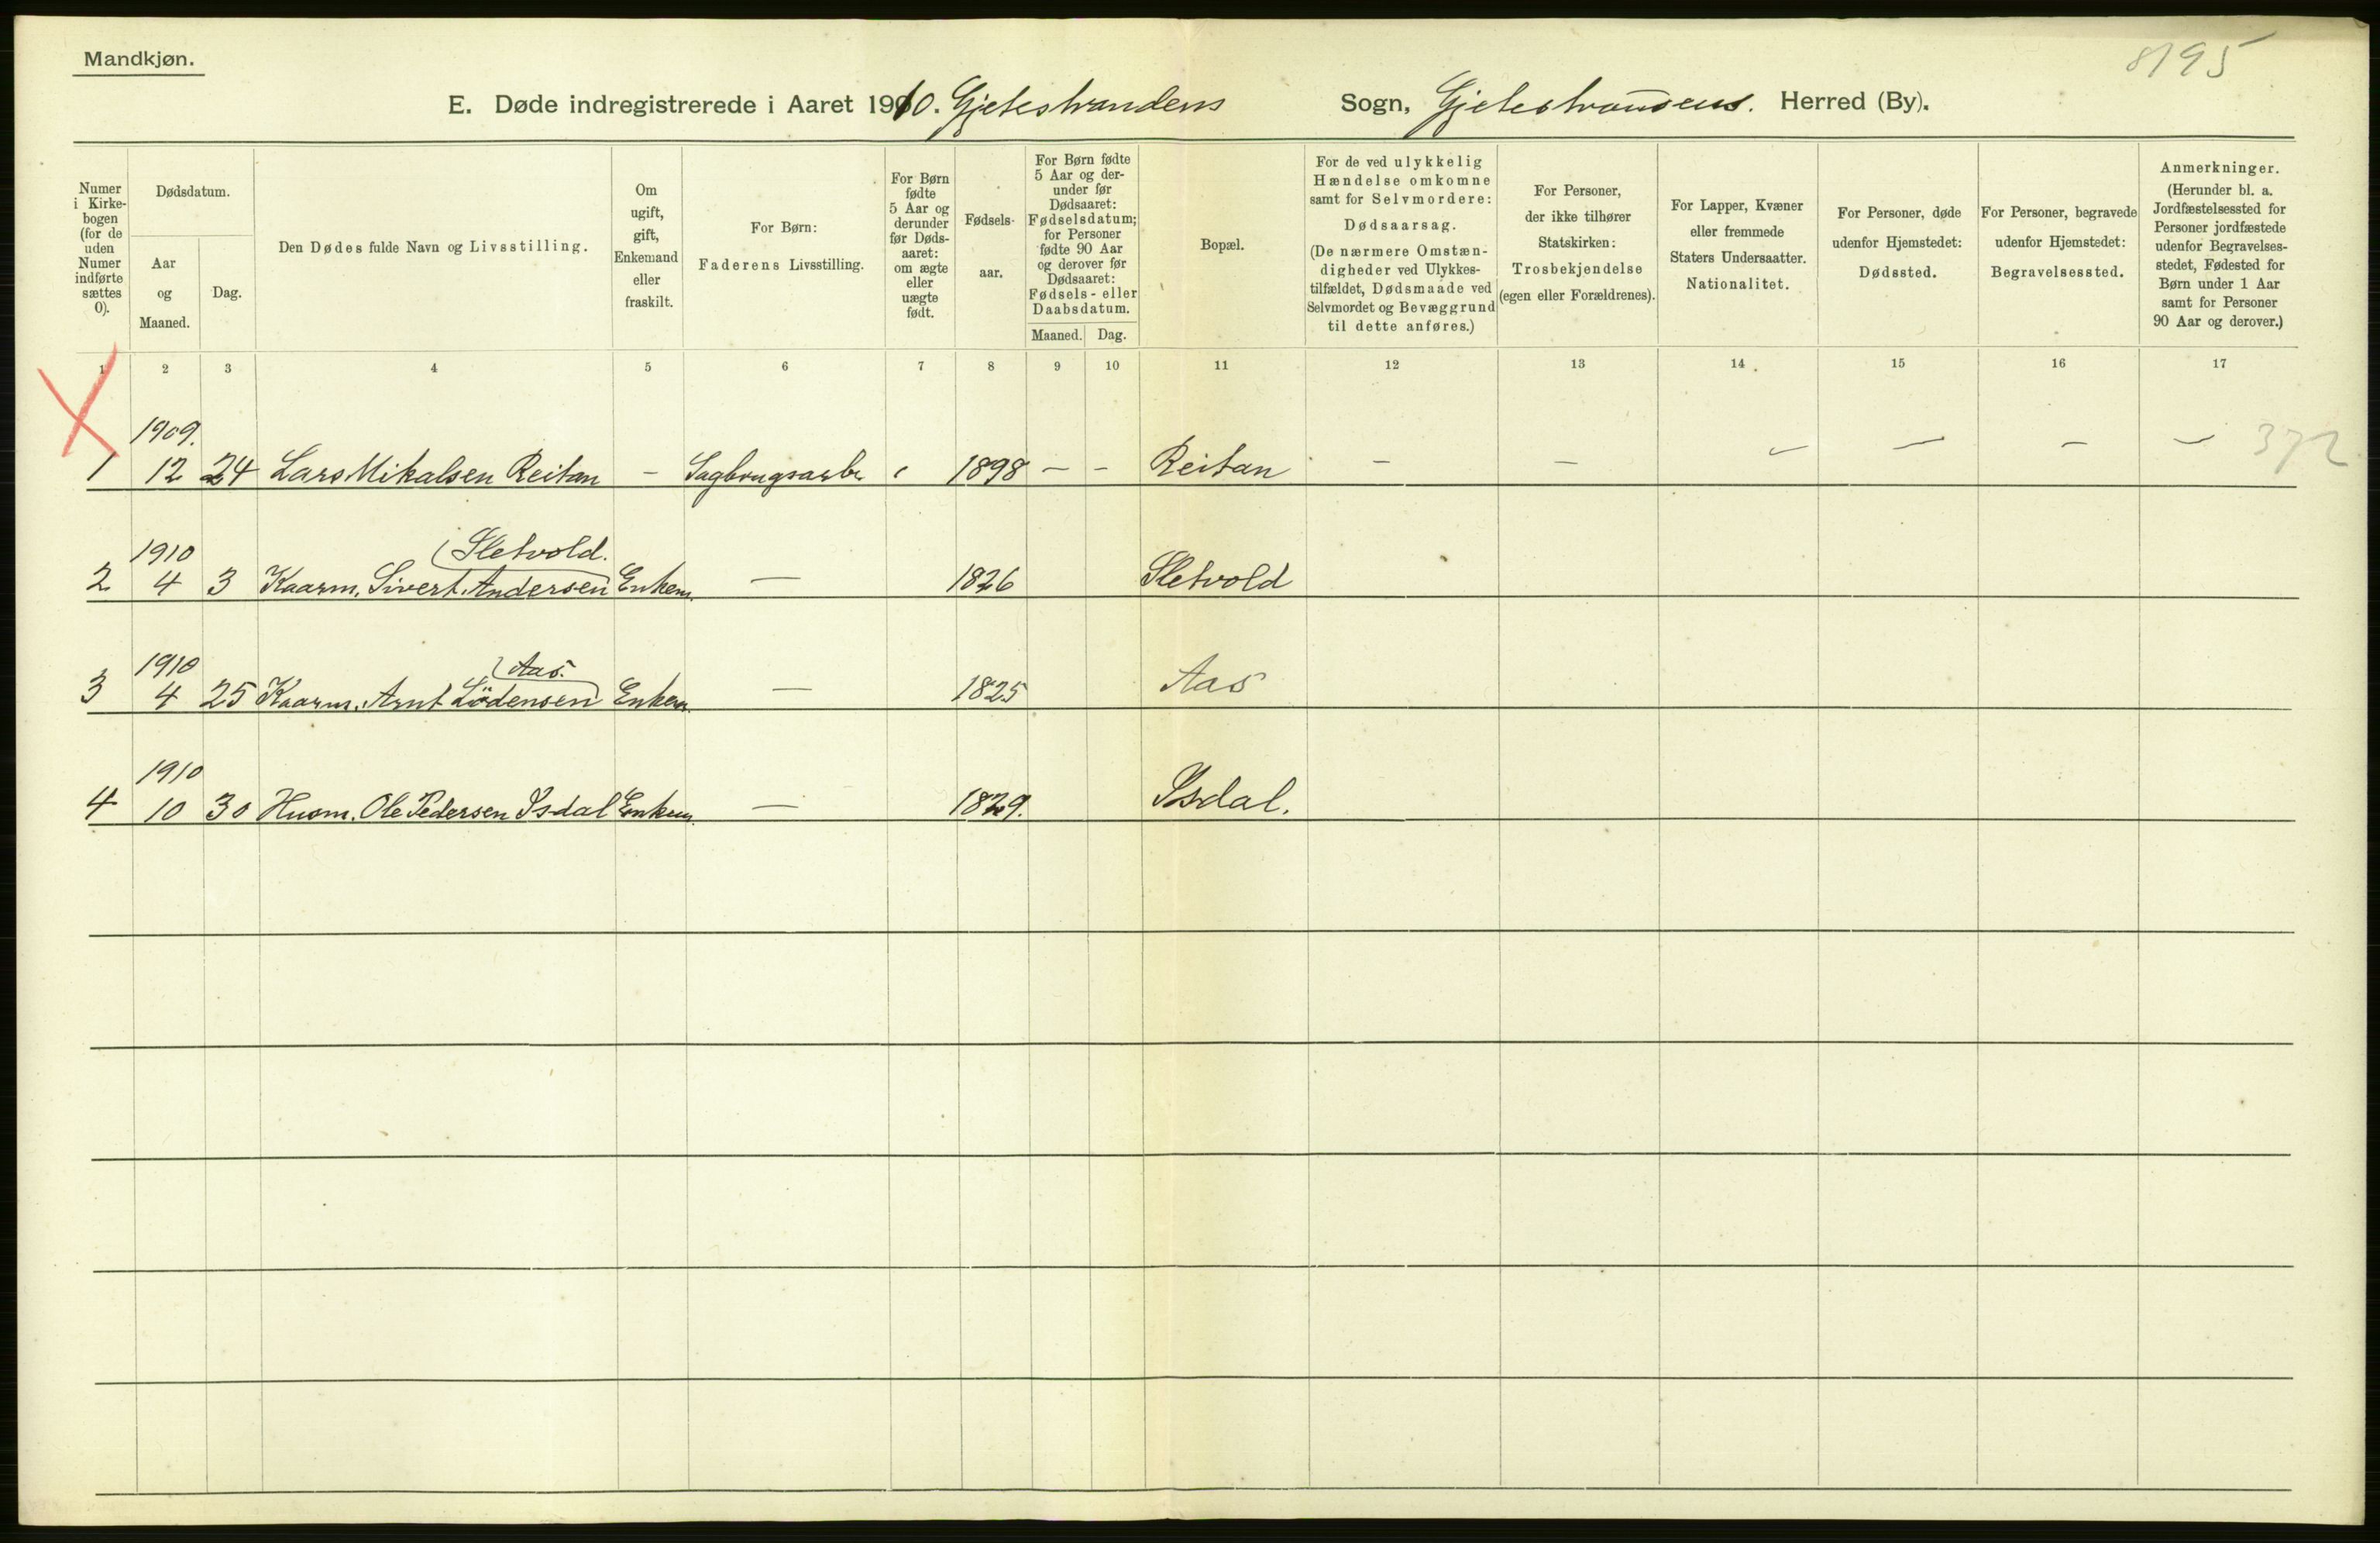 Mandkjøn.
8195
E. Døde indregistrerede i Aaret 1910. Gjetestrandens Sogn, Gjetestrandens. Herred (By).
Numer i Kirkebogen (for de uden Numer indførte sættes 0).
Dødsdatum.
Aar og Maaned.
Dag.
Den Dødes fulde Navn og Livsstilling.
Om ugift, gift, Enkemand eller fraskilt.
For Børn: Faderens Livsstilling.
For Børn fødte 5 Aar og derunder før Dødsaaret: om ægte eller uægte født.
Fødselsaar.
For Børn fødte 5 Aar og derunder før Dødsaaret: Fødselsdatum; for Personer fødte 90 Aar og derover før Dødsaaret: Fødsels- eller Daabsdatum.
Maaned. Dag.
Bopæl.
For de ved ulykkelig Hændelse omkomne samt for Selvmordere: Dødsaarsag. (De nærmere Omstændigheder ved Ulykkestilfældet, Dødsmaade ved Selvmordet og Bevæggrund til dette anføres.)
For Personer, der ikke tilhører Statskirken: Trosbekjendelse (egen eller Forældrenes).
For Lapper, Kvæner eller fremmede Staters Undersaatter. Nationalitet.
For Personer, døde udenfor Hjemstedet: Dødssted.
For Personer, begravede udenfor Hjemstedet: Begravelsessted.
Anmerkninger. (Herunder bl. a. Jordfæstelsessted for Personer jordfæstede udenfor Begravelsesstedet, Fødested for Børn under 1 Aar samt for Personer 90 Aar og derover.)
1 2 3 4 5 6 7 8 9 10 11 12 13 14 15 16 17
1909.
1 12 24 Lars Mikalsen Reitan - Sagbrugsarb. 1898 - - Reitan - - - - - - 372
1910 (Sletvold.
2 4 3 Kaarm. Sivert Andersen Enkem. — 1826 Sletvold
1910 (Aas.
3 4 25 Kaarm. Arnt Lödensen Enkem. — 1825 Aas
1910
4 10 30 Husm. Ole Pedersen Isdal Enkem. — 1829. Isdal.